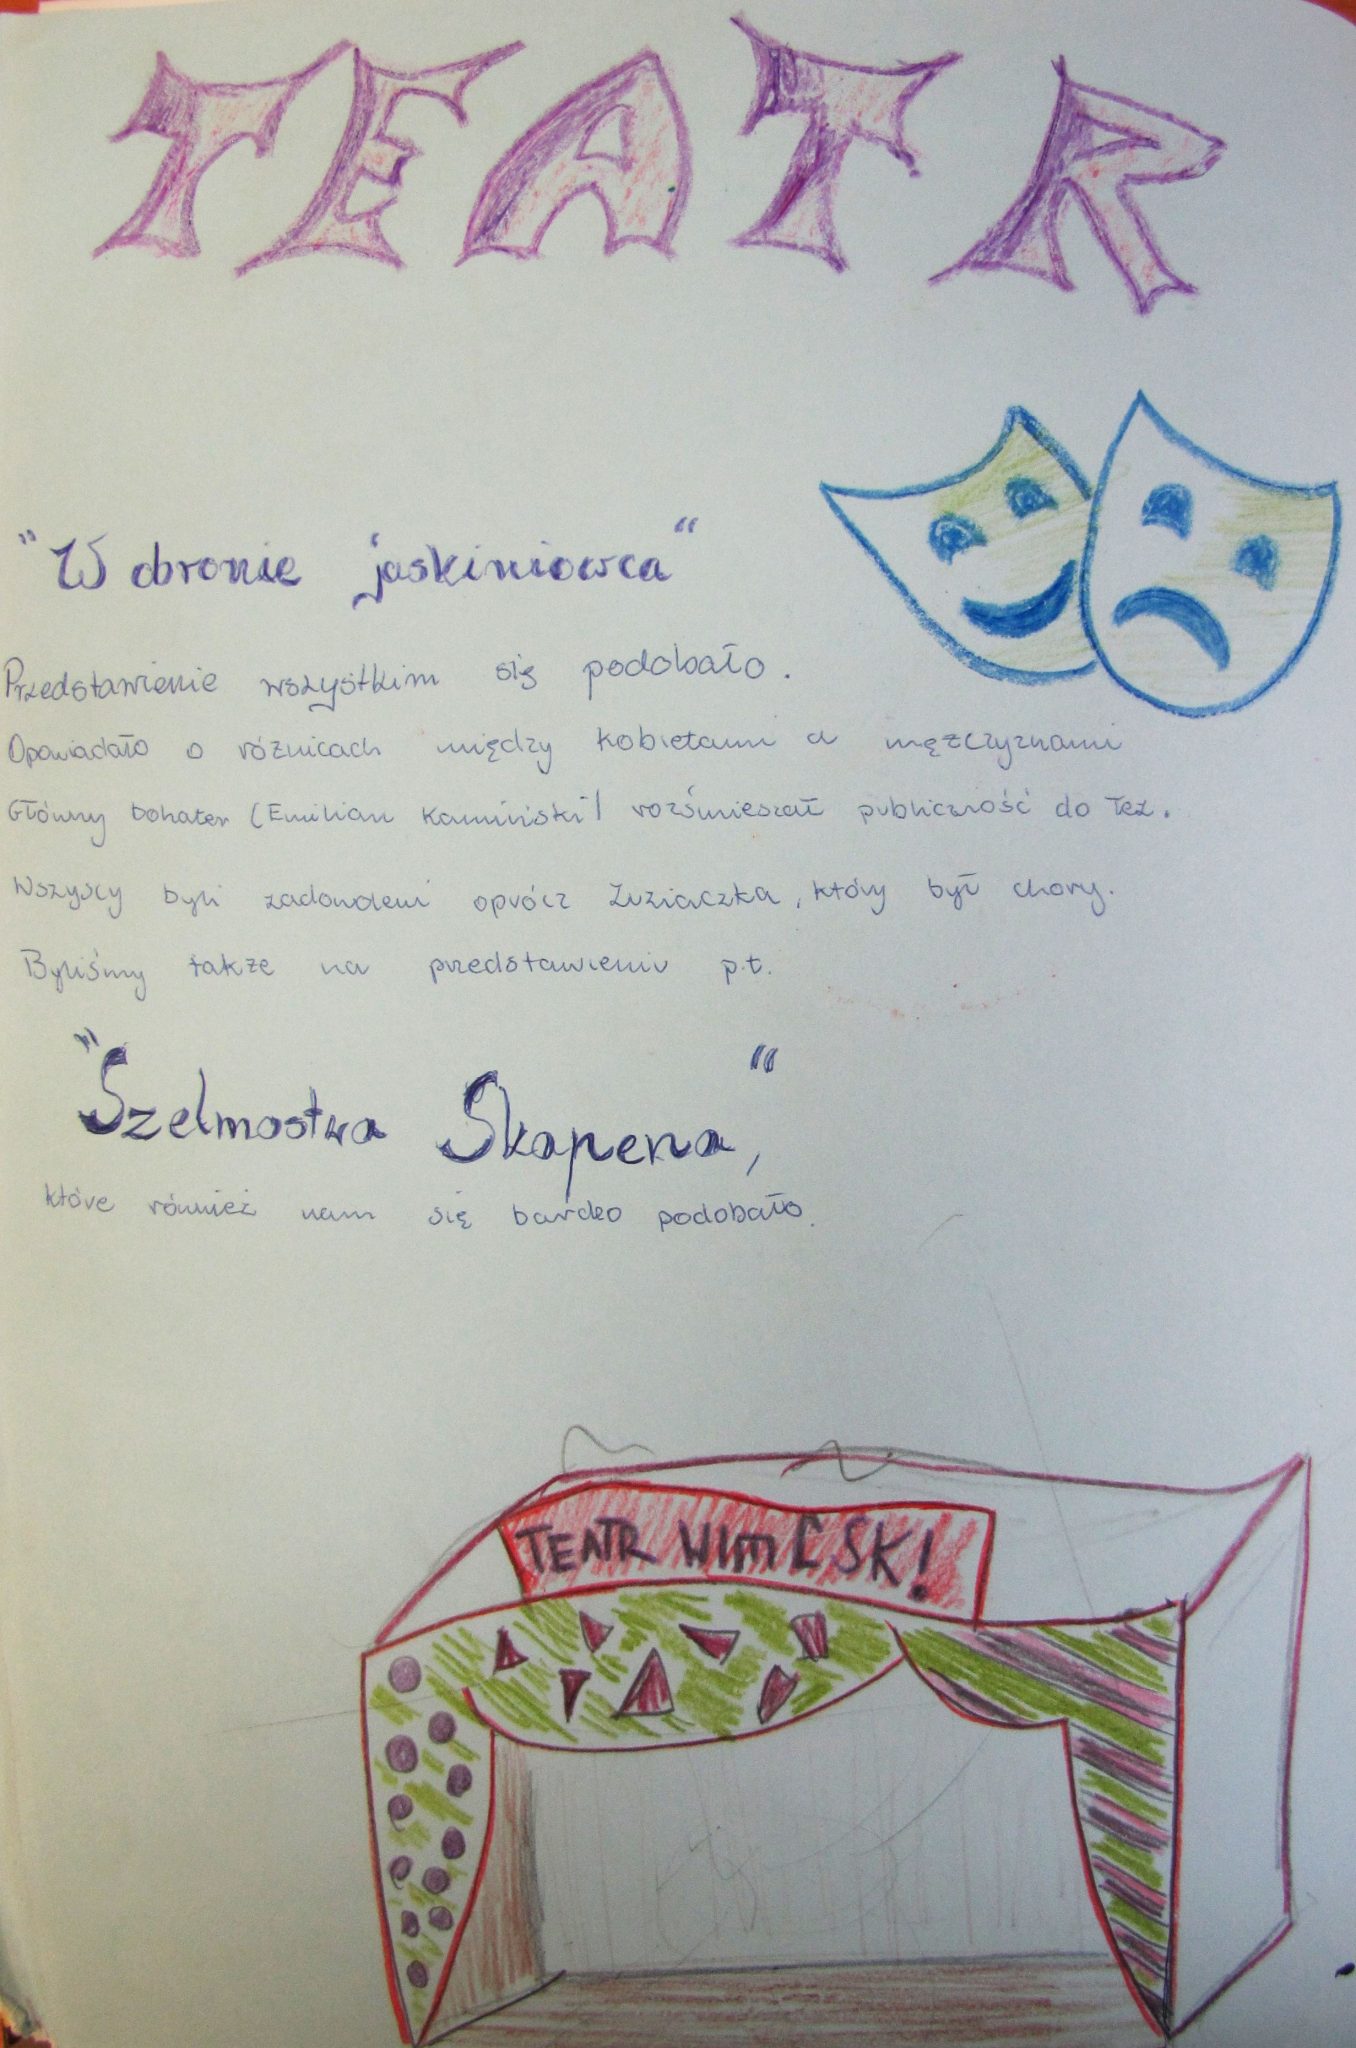 TEATR
"W obronie jaskiniowca"
Przedstawienie wszystkim się podobało.
Opowiadało o różnicach między kobietami a mężczyznami
Główny bohater (Emilian Kamiński) rozśmieszał publiczność do łez.
Wszyscy byli zadowoleni oprócz Zuziaczka, który był chory.
Byliśmy także na przedstawieniu p.t.
"Szelmostwa Skapena",
które również nam się bardzo podobało.
TEATR WIMLSK!